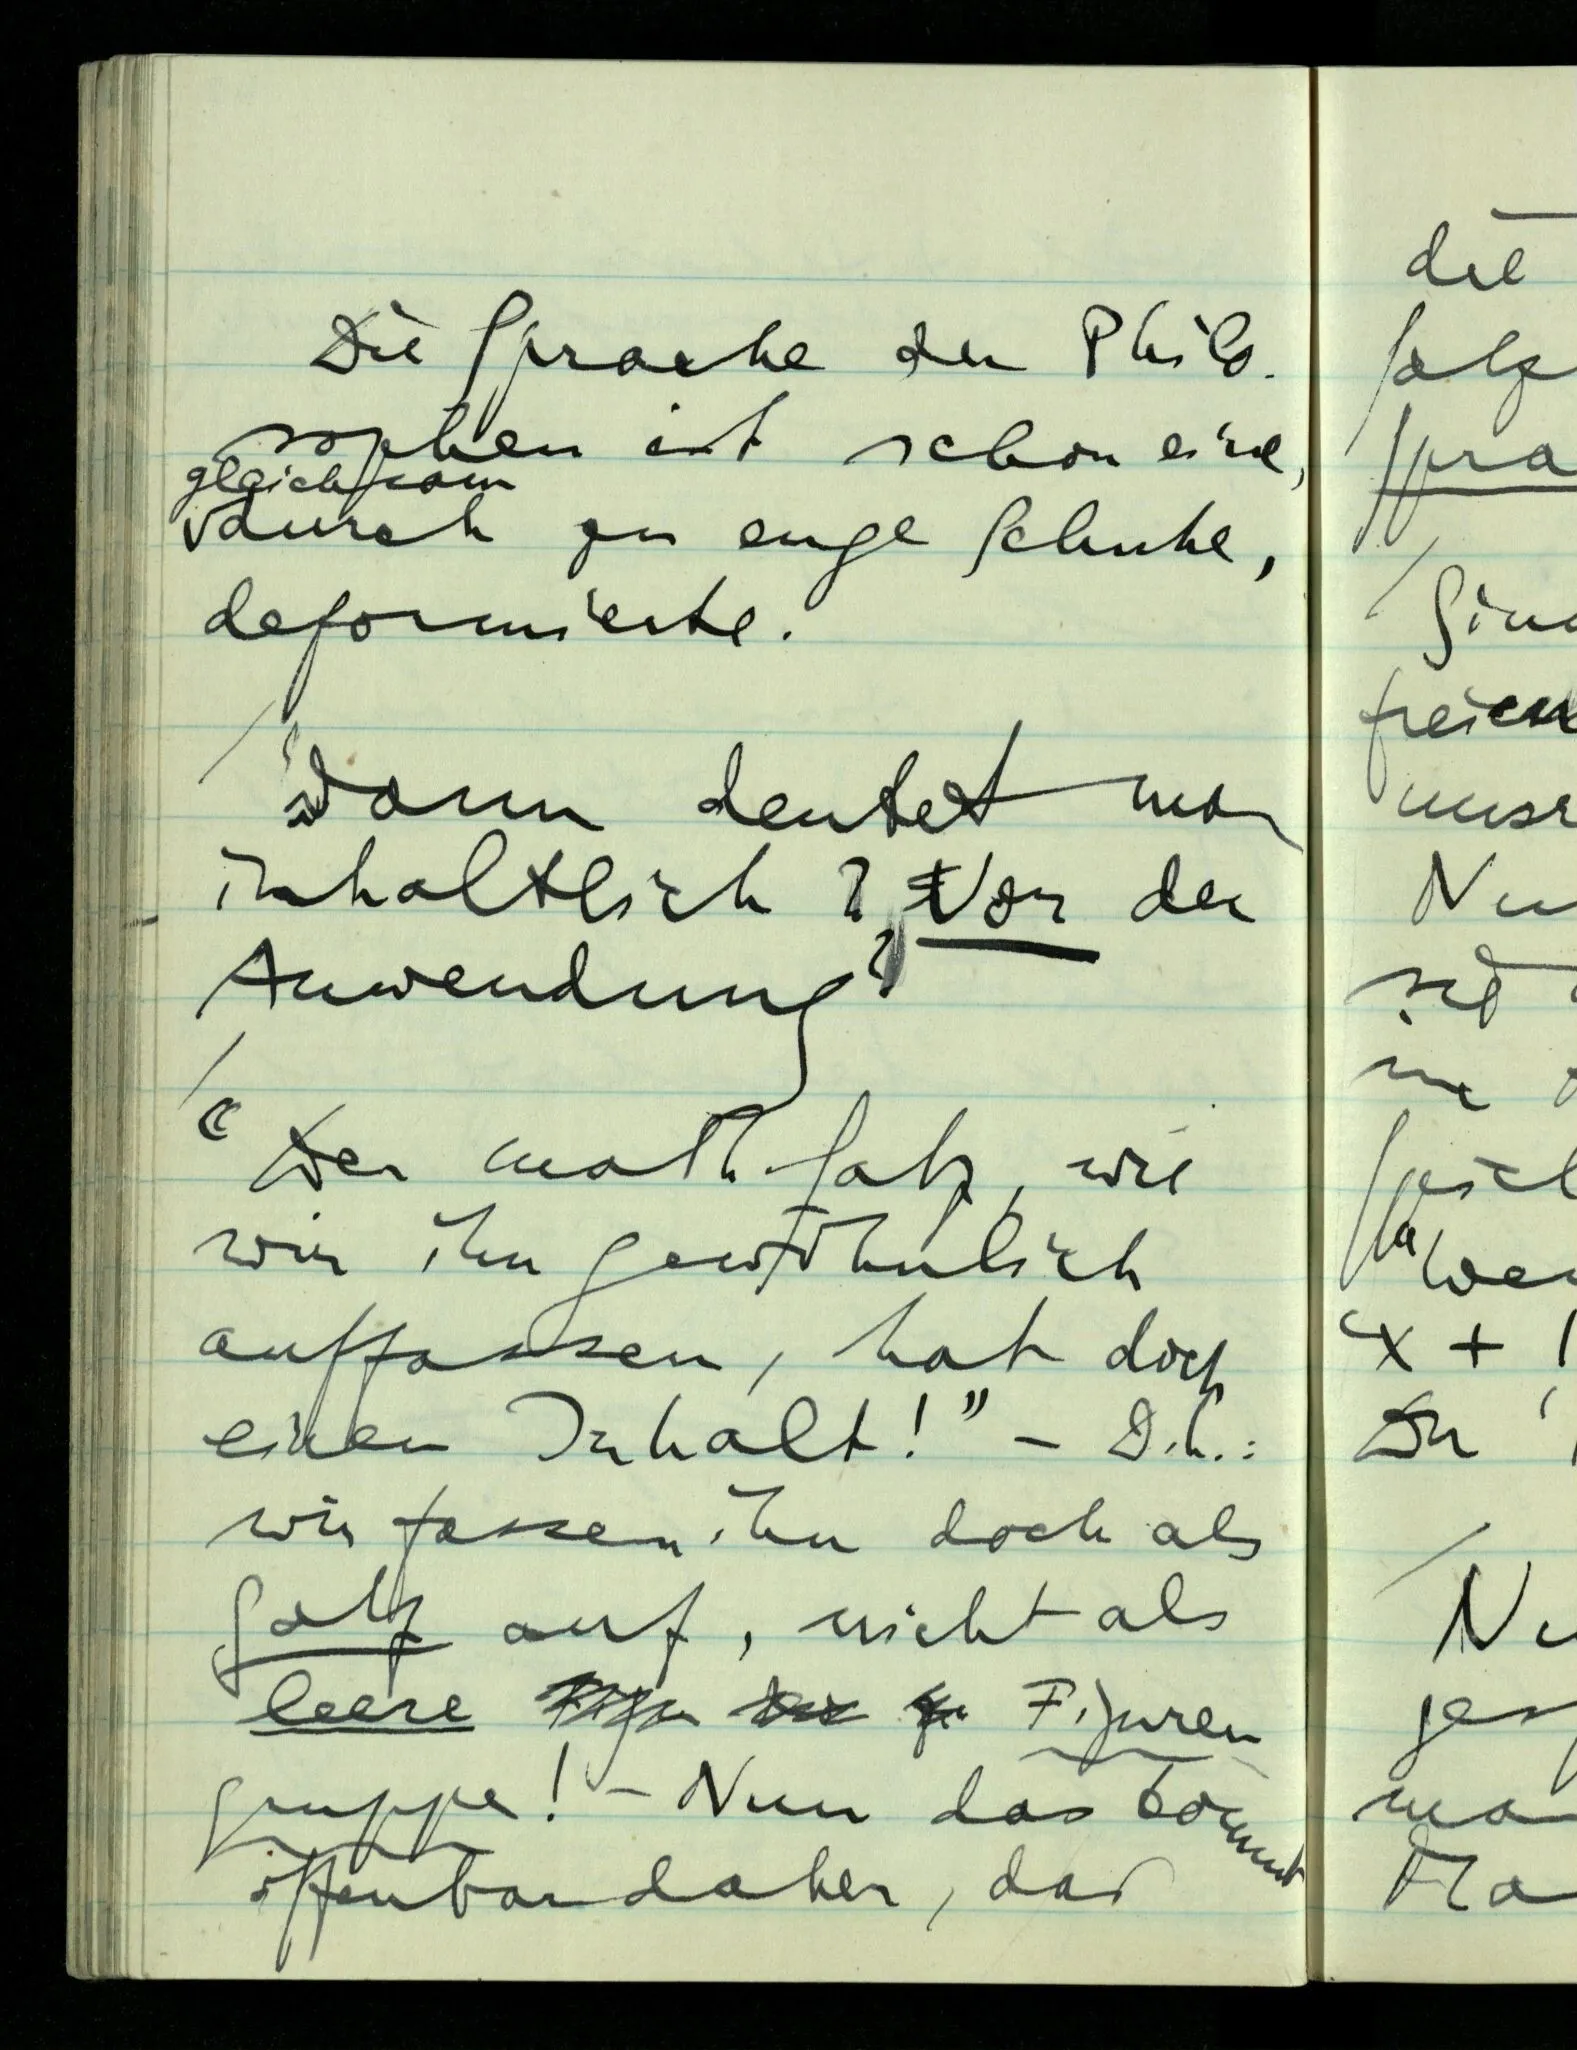 Die Sprache der Philo-
sophen ist schon eine,
gleichsam
durch zu enge Schuhe,
deformierte.
Wann deutet man
inhaltlich? Vor der
Anwendung?
“Der math. Satz, wie
wir ihn gewöhnlich
auffassen, hat doch
einen Inhalt!” – D.h.:
wir fassen ihn doch als
Satz auf, nicht als
leere Figuren
gruppe! – Nun das kommt
offenbar daher, daß
die
Satz
Spra
unsr
Nu
“x + 1
Nu
ges
ma